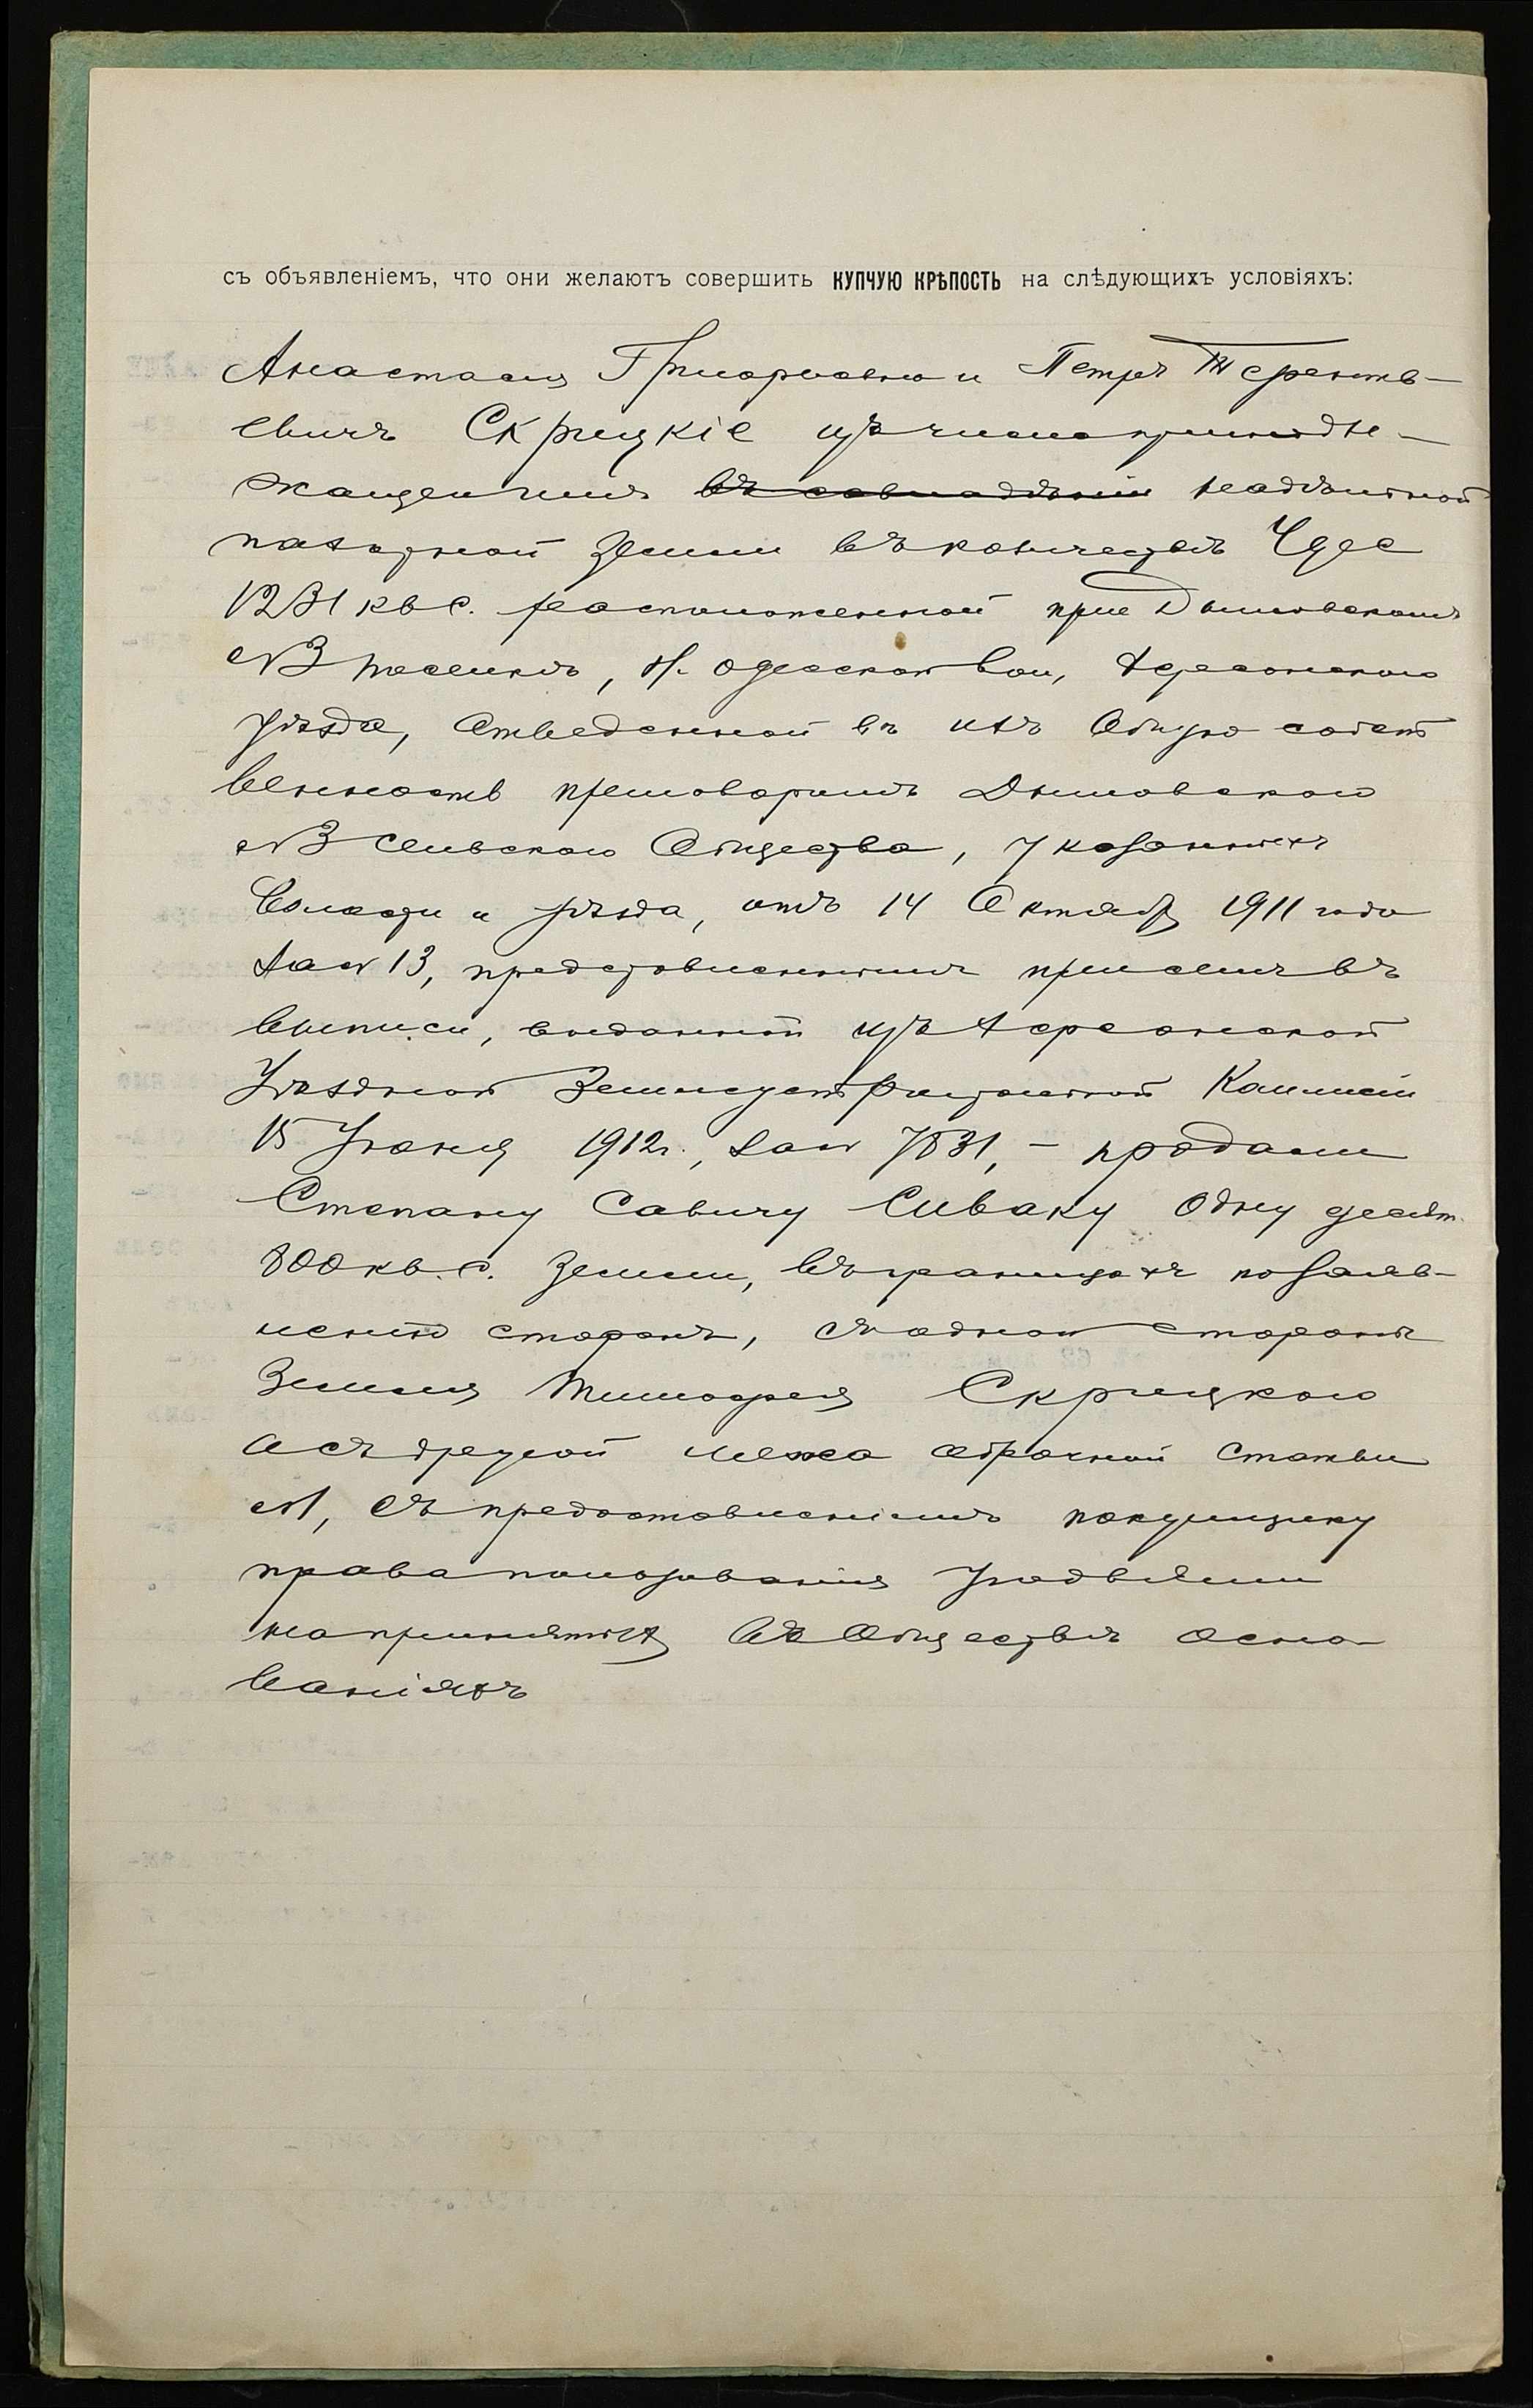 съ объявленіемъ, что они желаютъ совершить КУПЧУЮ КРѢПОСТЬ на слѣдующихъ условіяхъ:
Анастасія Григорьевна и Петръ Терентьевичъ
Скрицкіе изъ числа принадле-
жащей имъ въ совладѣніи надѣльной
пахатной земли въ количествѣ 4 дес
1231 кв с. расположенной при Дымовскомъ
№3 поселкѣ, Н. Одесской вол, Херсонскаго
уѣзда, отведенной въ ихъ общую собст
венность приговоромъ Дымовскаго
№3 сельскаго Общества, указанныхъ
волости и уѣзда, отъ 14 Октября 1911 года
за № 13, представленнымъ при семъ въ
выписи, выданной изъ Херсонской
Уѣздной Землеустроительной Коммисіи
15 Іюня 1912 г., за № 7831, - продали
Степану Савичу Сиваку одну десят.
800 кв. с. земли, въ границахъ по заяв-
ленію сторонъ, съ одной стороны
земля Тимофея Скрицкаго
а съ другой межа оброчной статьи
№1, съ предоставленіемъ покупщику
права пользованія угодьями
на принятыхъ въ Обществѣ осно-
ваніяхъ